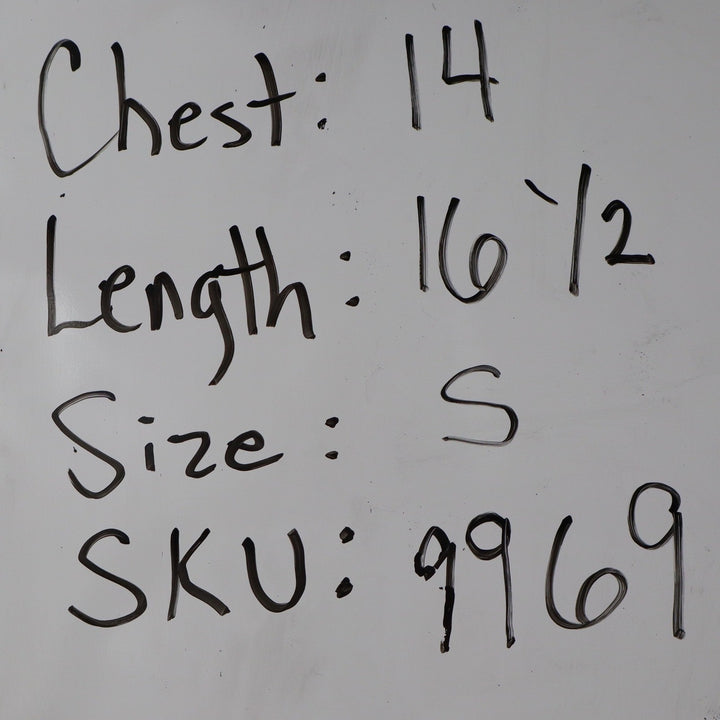 Chest: 14
Length: 16 1/2
Size: S
SKU: 9969